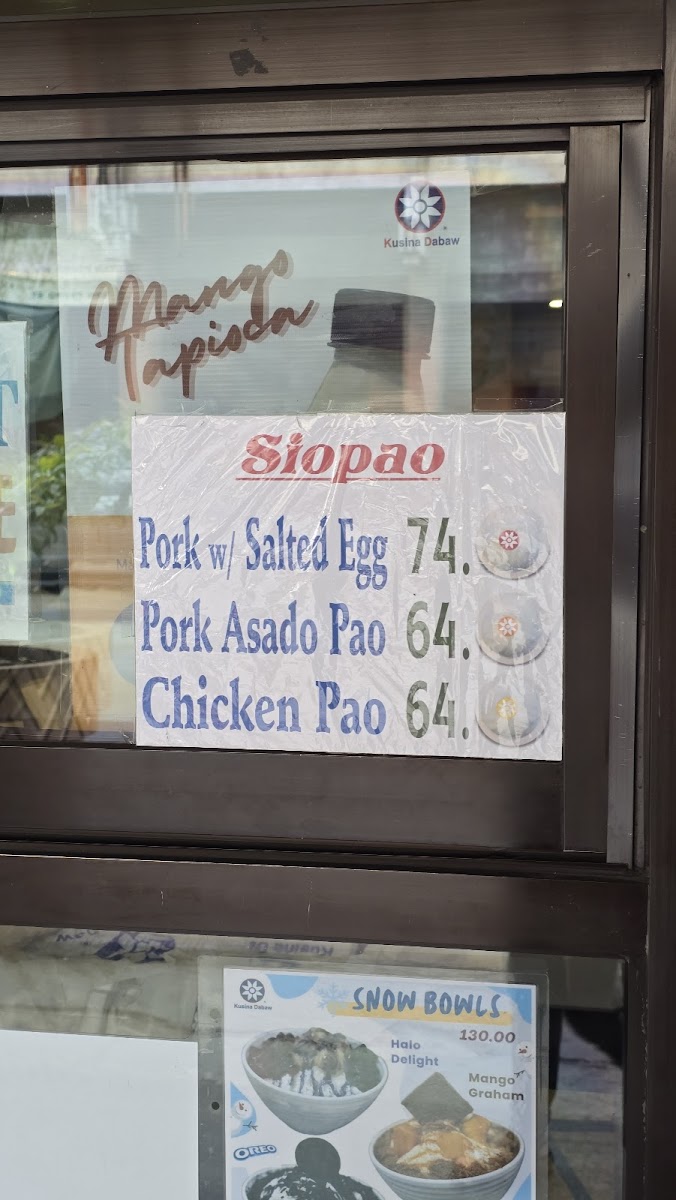 Kusina Dabaw
Mango
Tapioca
Siopao
Pork w/ Salted Egg 74.
Pork Asado Pao 64.
Chicken Pao 64.
Kusina Dabaw
SNOW BOWLS
130.00
Halo
Delight
Mango
Graham
OREO